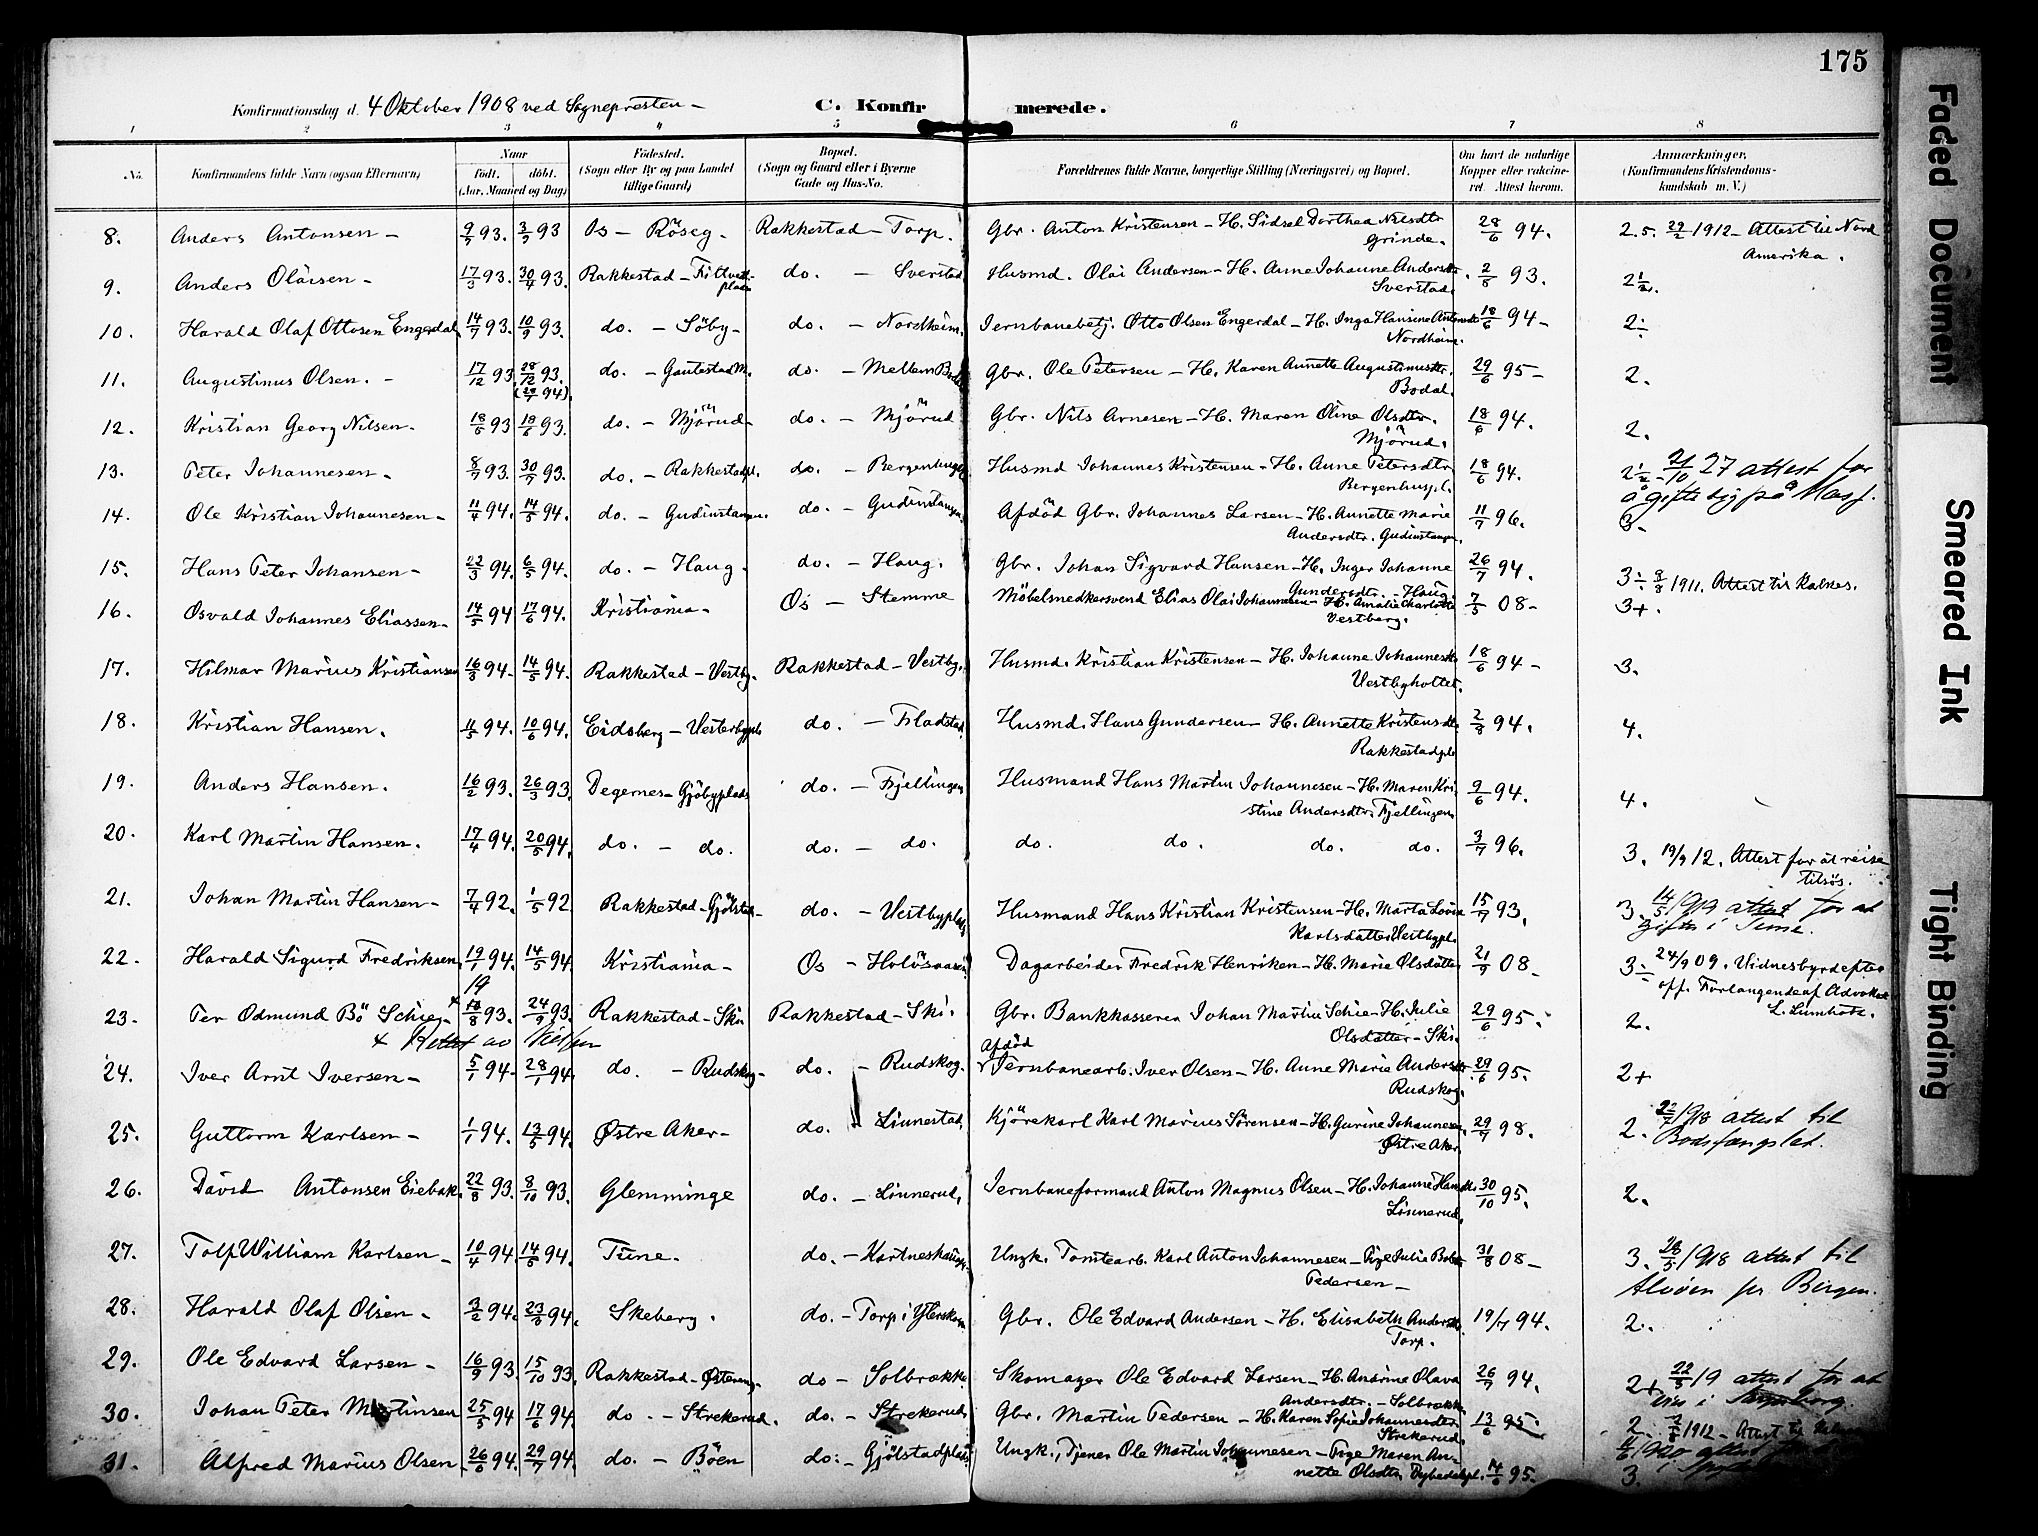 175
Konfirmationsdag d. 4 Oktober 1908 ved Sognepræsten – C. Konfirmerede.
1 2 3 4 5 6 7 8
No. Konfirmandens fulde Navn (ogsaa Efternavn) Naar født. døbt. (Aar, Maaned og Dag) Fødested. (Sogn eller By og paa Landet tillige Gaard) Bopæl. (Sogn og Gaard eller i Byerne Gade og Hus-No. Forældrenes fulde Navne, borgerlige Stilling (Næringsvei) og Bopæl. Om havt de naturlige Kopper eller vakcineret. Attest herom. Anmærkninger. (Konfirmandens Kristendomskundskab m. V.)
8. Anders Antonsen – 9/7 93. 3/9 93 Os – Röseg – Rakkestad – Torp. Gbr. Anton Kristensen – H. Sidsel Dorthea Nilsdtr Grinde. 28/6 94. 2.5. 22/2 1912 – Attest til Nord Amerika.
9. Anders Olaisen – 17/3 93. 30/4 93. Rakkestad – do. – Sverstad Husmd. Olai Andersen – H. Anne Johanne Andersdtr. Sverstad. 2/8 93. 2½.
10. Harald Olaf Ottosen Engerdal 14/7 93. 10/9 93. do. – Söby – do. – Nordheim. Jernbanebetj. Otto Olsen Engerdal – H. Inga Hansine Nordheim. 18/6 94 – 2÷
11. Augustinus Olsen. – 17/12 93 28/12 93. do. – Gautestad M. do. – Mellem Gbr. Ole Petersen – H. Karen Annette Bodal. 29/6 95 – 2.
12. Kristian Georg Nilsen. 18/6 93 do. – Mjörud – do. – Mjörud Gbr. Nils Arnesen – H. Maren Oline Olsdtr. Mjörud. 18/6 94. 2.
13. Peter Johannesen – 8/7 93. 30/7 93. do. – Rakkestadpl. do. – Husmd Johannes Kristensen – H. Anne Petersdtr Bergenhuspl. 18/6 94. 2½ 21/10 27 attest for å gifte sig på
14. Ole Kristian Johannesen – 11/4 94. 14/5 94. do. – Gudimstangen. do. – Gudimstangen Afdöd Gbr. Johannes Larsen – H. Annette Marie Andersdtr. Gudimstangen. 11/7 96. 3 –
15. Hans Peter Johansen – 22/3 94. 6/5 94. do. – Haug. do. – Haug. Gbr. Johan Sigvard Hansen – H. Inger Johanne Gundersdtr. – Haug. 26/7 94. 3÷ 1911. Attest til Kalnes.
16. Osvald Johannes Eliassen – 14/5 94 17/6 94. Kristiania – Os – Stemme Möbelsnedkersvend Elias Olai Johannesen – H. Amalie Charlotte Vestberg. 7/5 08 – 3+.
17. Hilmar Marius Kristiansen 16/3 94. 14/5 94. Rakkestad – Vestby. Rakkestad – Vestby. Husmd. Kristian Kristensen – H. Johanne Vestbyholtet. 18/6 94 – 3.
18. Kristian Hansen. 94. 10/6 94. Eidsberg – do. – Fladstad. Husmd. Hans Gundersen – H. Annette Kristensdtr Rakkestadpl. 2/8 94. 4.
19. Anders Hansen. 16/2 93. 26/3 93. Degernes – Gjöbyplads do. – Fjellingen Husmand Hans Martin Johannesen – H. Maren Kristine Andersdtr. Fjellingen 9/6 94. 4.
20. Karl Martin Hansen. 17/4 94. 20/5 94. do. – do. do. – do. do. do. do. do. 3/7 96. 3. 19/9 12. Attest for at reise tilsös.
21. Johan Martin Hansen – 7/4 92. 1/5 92 Rakkestad – Gjölstad – do. – Vestbyplads Husmand Hans Kristian Kristensen – H. Marta Lovise Karlsdatter Vestbypl. 15/7 93. 3 14/5 1919 attest for at gifte i Tune.
22. Harald Sigurd Fredriksen 19/1 94. 14/5 94. Kristiania – Os – Dagarbeider Fredrik Henriken – H. Marie Olsdatter 21/9 08 – 3÷ 24/9 09. Vidnesbyrd efter off. Forlangende af Advokat
23. Per Odmund Bö Schie – × 19 18/8 93. 24/9 93. Rakkestad – Ski. Rakkestad – Ski. Gbr. Bankkasserer Johan Martin Schie – H. Julie Olsdatter – Ski. 29/6 95. 2.
× Rettet av
24. Iver Arnt Iversen – 5/1 94 – 28/1 94. do. – Rudskog – do. – Rudskog. Afdöd Jernbanearb. Iver Olsen – H. Anne Marie Andersdtr Rudskog. 29/6 95. 2+
25. Guttorm Karlsen – 1/1 94. 13/5 94. Østre Aker – do. – Linnestad. Kjörekarl Karl Marius Sörensen – H. Gurine Johannesen. Østre Aker. 29/7 98. 2. 1918 attest til Bodsfængslet.
26. David Antonsen Eiebak. 22/8 93. 8/10 93. Glemminge do. – Linnerud, Jernbaneformand Anton Magnus Olsen – H. Johanne Linnerud. 30/10 95. 2.
27. Tolf William Karlsen – 10/4 94. 14/5 94. Tune. do. – Ungk. Tomtearb. Karl Anton Johannesen – Pige Julie Pedersen – 31/8 08 – 3. 28/5 1918 attest til Alvöen pr Bergen.
28. Harald Olaf Olsen – 3/2 94. 23/3 94. Skeberg. do. – Torp i Gbr. Ole Edvard Andersen – H. Elisabeth Andersdtr. Torp. 19/7 94. 2.
29. Ole Edvard Larsen – 16/9 93. 15/10 93. Rakkestad – do – Solbrække Skomager Ole Edvard Larsen – H. Olava Andersdtr. – Solbrække. 26/7 94. 2+ 22/5 19 attest for at
30. Johan Peter Martinsen 25/5 94 17/6 94 do. – Strekerud. do. – Strekerud. Gbr. Martin Pedersen – H. Karen Sofie Johannesdtr. Strekerud. 13/6 95. 2. 1912 – Attest
31. Alfred Marius Olsen 26/6 94. 29/7 94. do. – Böen do. – Gjölstadplads Ungk., Tjener Ole Martin Johannesen – Pige Maren Annette Olsdtr. 14/6 95. 3. 1920 attest
Faded Document
Smeared Ink
Tight Binding